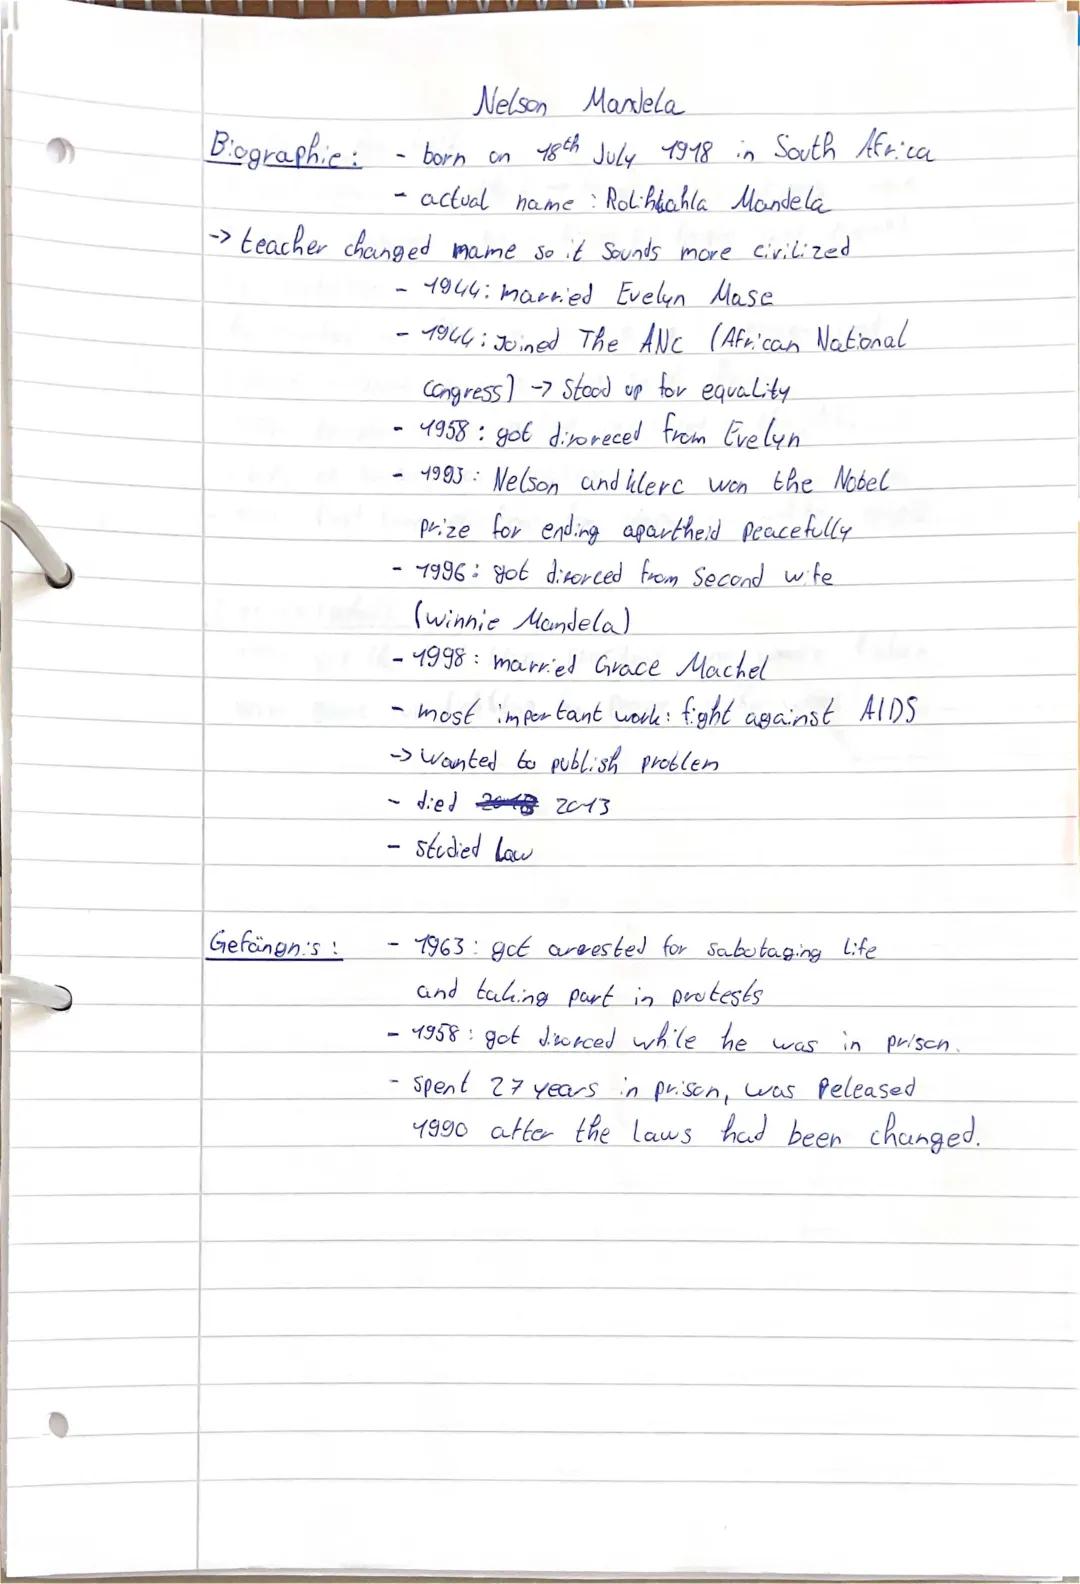 Nelson Mandela
Biographie: - born on 18th July 1918 in South Africa
- actual name: Rolihlahla Mandela
-> teacher changed name so it sounds more civilized
- 1944: married Evelyn Mase
- 1944: Joined The ANC (African National
Congress) -> Stood up for equality
- 1958: got divoreced from Evelyn
- 1993: Nelson and klerc won the Nobel
prize for ending apartheid peacefully
- 1996: got divorced from Second wife
(winnie Mandela)
- 1998: married Grace Machel
- most important work: fight against AIDS
-> Wanted to publish problem
- died 2013
- studied Law
Gefängnis: - 1963: got arrested for sabotaging life
and taking part in protests
- 1958: got divorced while he was in prison.
- spent 27 years in prison, was Released
1990 after the laws had been changed.